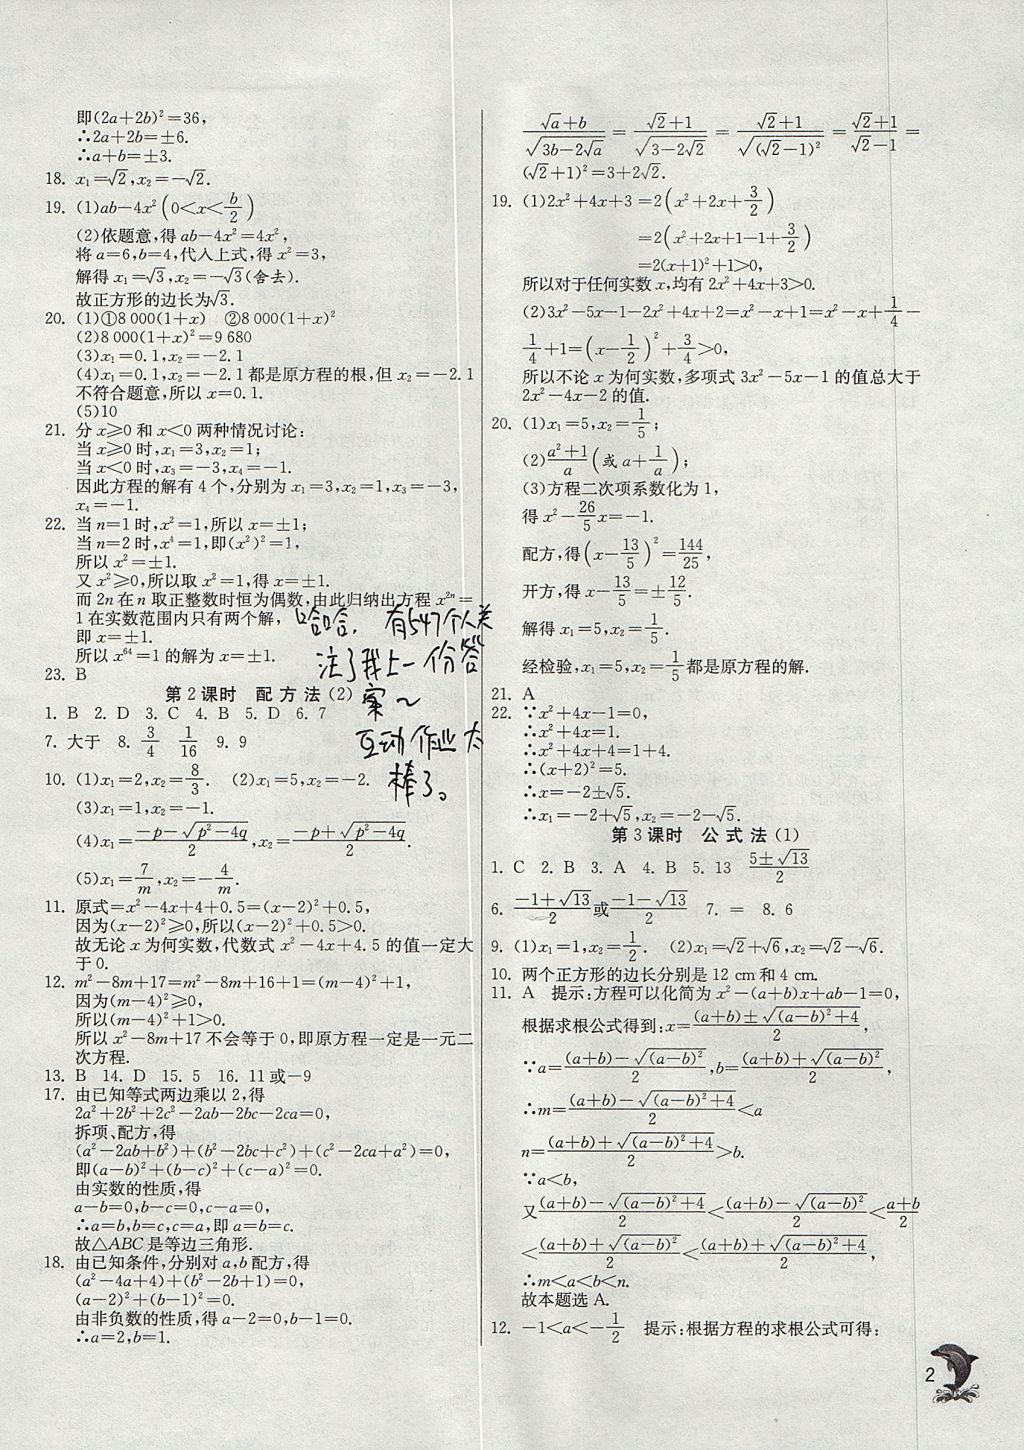 即(2a+2b)²=36,
∴2a+2b=±6.
∴a+b=±3.
18. x₁=√2,x₂=-√2.
19. (1)ab-4x²(0<x<b/2)
(2)依题意,得 ab-4x²=4x²,
将 a=6,b=4,代入上式,得 x²=3,
解得 x₁=√3,x₂=-√3(舍去).
故正方形的边长为√3.
20. (1)①8 000(1+x) ②8 000(1+x)²
(2)8 000(1+x)²=9 680
(3)x₁=0.1,x₂=-2.1
(4)x₁=0.1,x₂=-2.1都是原方程的根,但 x₂=-2.1
不符合题意,所以 x=0.1.
(5)10
21. 分 x≥0 和 x<0 两种情况讨论:
当 x≥0 时,x₁=3,x₂=1;
当 x<0 时,x₃=-3,x₄=-1.
因此方程的解有 4 个,分别为 x₁=3,x₂=1,x₃=-3,
x₄=-1.
22. 当 n=1 时,x²=1,所以 x=±1;
当 n=2 时,x⁴=1,即(x²)²=1,
所以 x²=±1.
又 x²≥0,所以取 x²=1,得 x=±1.
而 2n 在 n 取正整数时恒为偶数,由此归纳出方程 x²ⁿ=
1 在实数范围内只有两个解,
即 x=±1.
所以 x⁶⁴=1 的解为 x=±1.
23. B
哈哈, 有547个人关
注了我上一份答
案~
互动作业太
棒了。
第 2 课时 配方法(2)
1. B 2. D 3. C 4. B 5. D 6. 7
7. 大于 8. 3/4 1/16 9. 9
10. (1)x₁=2,x₂=8/3. (2)x₁=5,x₂=-2.
(3)x₁=1,x₂=-1.
(4)x₁=(-p-√(p²-4q))/2,x₂=(-p+√(p²-4q))/2.
(5)x₁=7/m,x₂=-4/m.
11. 原式=x²-4x+4+0.5=(x-2)²+0.5,
因为(x-2)²≥0,所以(x-2)²+0.5>0.
故无论 x 为何实数,代数式 x²-4x+4.5 的值一定大
于 0.
12. m²-8m+17=m²-8m+16+1=(m-4)²+1,
因为(m-4)²≥0,
所以(m-4)²+1>0.
所以 x²-8m+17 不会等于 0,即原方程一定是一元二
次方程.
13. B 14. D 15. 5 16. 11或-9
17. 由已知等式两边乘以 2,得
2a²+2b²+2c²-2ab-2bc-2ca=0,
拆项、配方,得
(a²-2ab+b²)+(b²-2bc+c²)+(c²-2ca+a²)=0,
即(a-b)²+(b-c)²+(c-a)²=0.
由实数的性质,得
a-b=0,b-c=0,c-a=0,
∴a=b,b=c,c=a,即 a=b=c.
故△ABC是等边三角形.
18. 由已知条件,分别对 a,b 配方,得
(a²-4a+4)+(b²-2b+1)=0,
(a-2)²+(b-1)²=0.
由非负数的性质,得 a-2=0,b-1=0.
∴a=2,b=1.
(√a+b)/√(3b-2√a)=(√2+1)/√(3-2√2)=(√2+1)/√((√2-1)²)=(√2+1)/(√2-1)=
(√2+1)²=3+2√2.
19. (1)2x²+4x+3=2(x²+2x+3/2)
=2(x²+2x+1-1+3/2)
=2(x+1)²+1>0,
所以对于任何实数 x,均有 2x²+4x+3>0.
(2)3x²-5x-1-2x²+4x+2=x²-x+1=x²-x+1/4-
1/4+1=(x-1/2)²+3/4>0,
所以不论 x 为何实数,多项式 3x²-5x-1 的值总大于
2x²-4x-2 的值.
20. (1)x₁=5,x₂=1/5;
(2)(a²+1)/a(或 a+1/a);
(3)方程二次项系数化为 1,
得 x²-26/5x=-1.
配方,得(x-13/5)²=144/25,
开方,得 x-13/5=±12/5.
解得 x₁=5,x₂=1/5.
经检验,x₁=5,x₂=1/5都是原方程的解.
21. A
22. ∵x²+4x-1=0,
∴x²+4x=1.
∴x²+4x+4=1+4.
∴(x+2)²=5.
∴x=-2±√5.
∴x₁=-2+√5,x₂=-2-√5.
第 3 课时 公式法(1)
1. C 2. B 3. A 4. B 5. 13 (5±√13)/2
6. (-1+√13)/2或(-1-√13)/2 7. = 8. 6
9. (1)x₁=1,x₂=1/2. (2)x₁=√2+√6,x₂=√2-√6.
10. 两个正方形的边长分别是 12 cm 和 4 cm.
11. A 提示:方程可以化简为 x²-(a+b)x+ab-1=0,
根据求根公式得到:x=((a+b)±√((a-b)²+4))/2,
∵a=((a+b)-√((a-b)²))/2,b=((a+b)+√((a-b)²))/2,
∴m=((a+b)-√((a-b)²+4))/2<a
n=((a+b)+√((a-b)²+4))/2>b.
∵a<b,
又((a+b)-√((a-b)²+4))/2<((a+b)-√((a-b)²))/2<(a+b)/2
<((a+b)+√((a-b)²))/2<((a+b)+√((a-b)²+4))/2,
∴m<a<b<n.
故本题选 A.
12. -1<a<-1/2 提示:根据方程的求根公式可得:
2